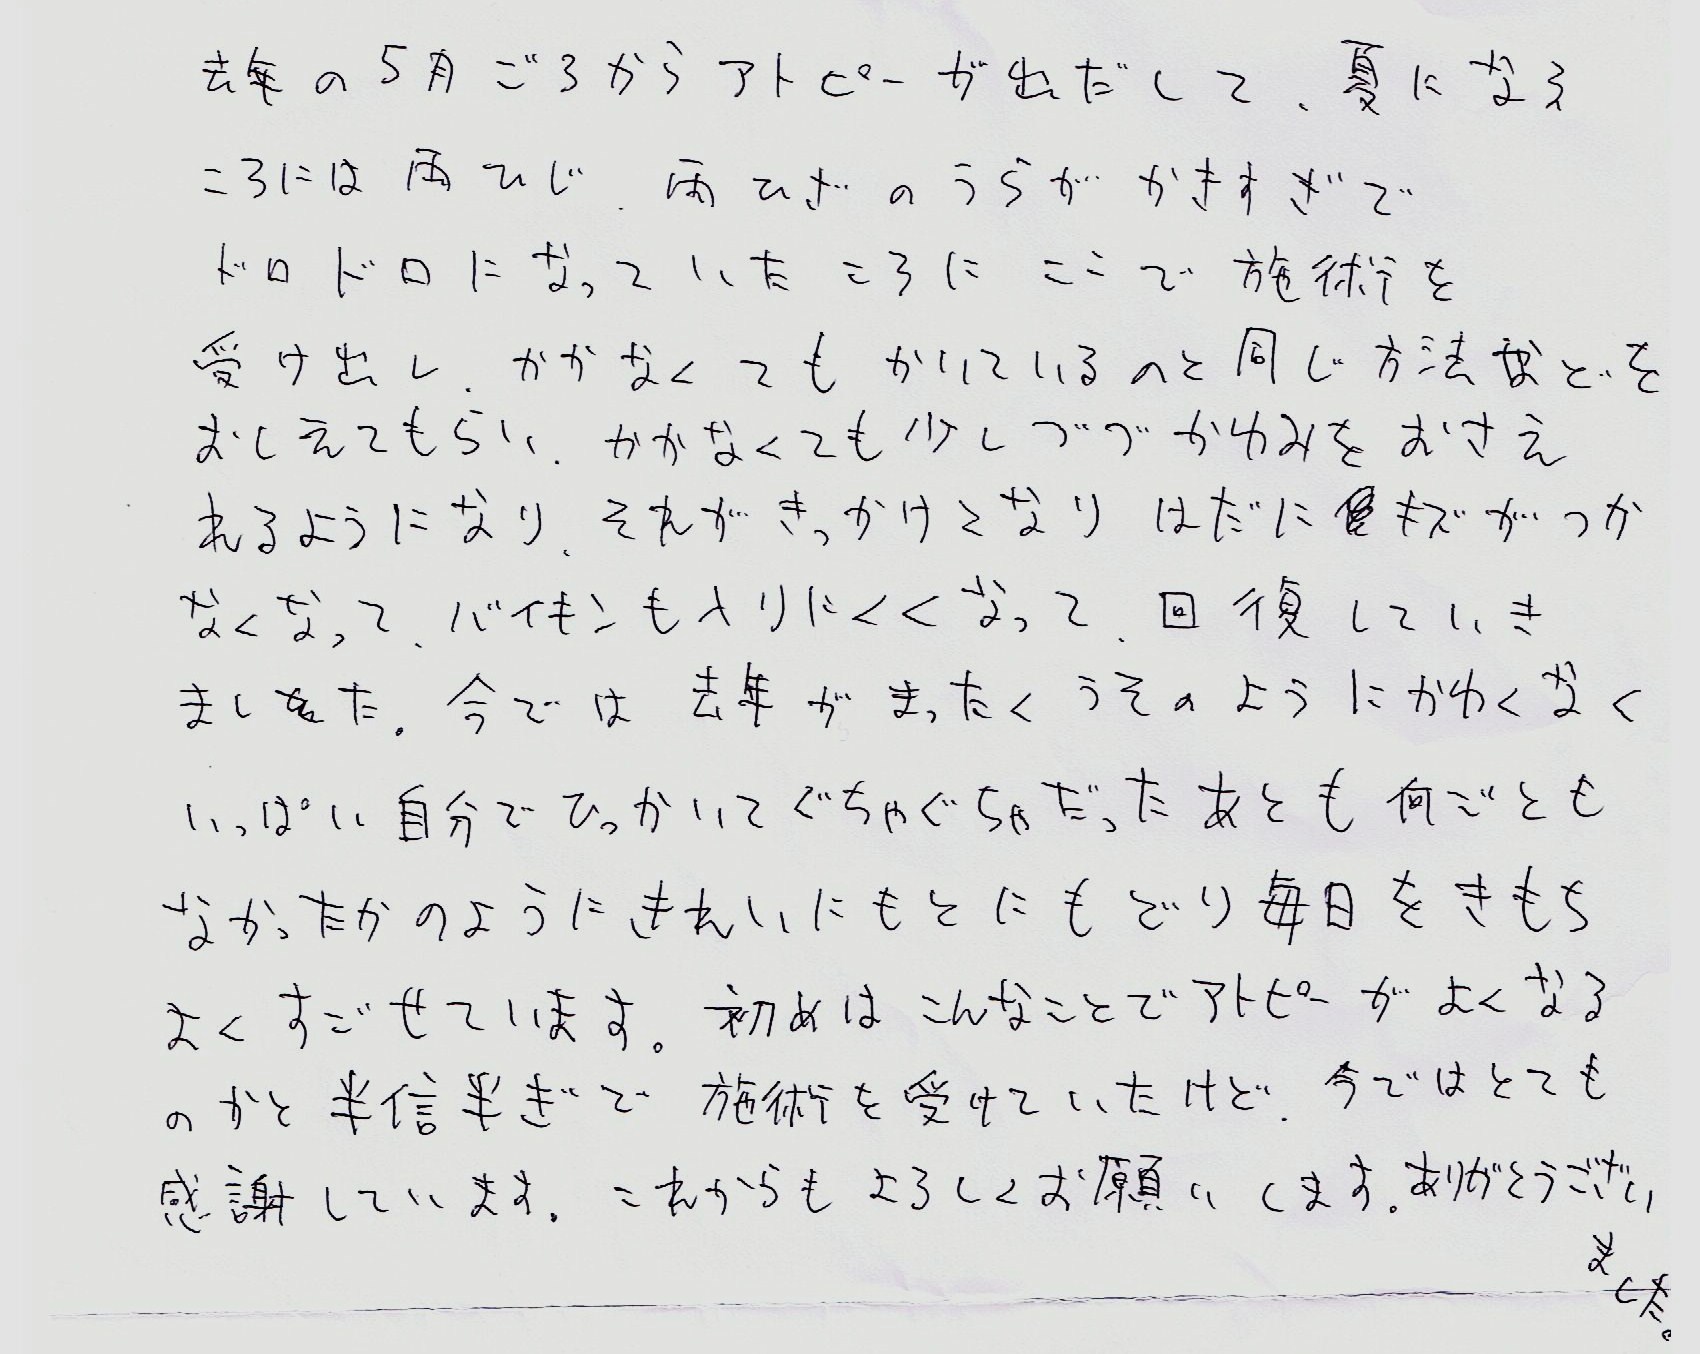 去年の5月ごろからアトピーが出だして、夏になる
ころには両ひじ、両ひざのうらがかきすぎで
ドロドロになっていたころにここで施術を
受け出し、かかなくてもかいているのと同じ方法などを
おしえてもらい、かかなくても少しづづかゆみをおさえ
れるようになり、それがきっかけとなりはだにキズがつか
なくなって、バイキンも入りにくくなって、回復していき
ました。今では去年がまったくうそのようにかゆくなく
いっぱい自分でひっかいてぐちゃぐちゃだったあとも何ごとも
なかったかのようにきれいにもとにもどり毎日をきもち
よくすごせています。初めはこんなことでアトピーがよくなる
のかと半信半ぎで施術を受けていたけど、今ではとても
感謝しています。これからもよろしくお願いします。ありがとうござい
ま
した。